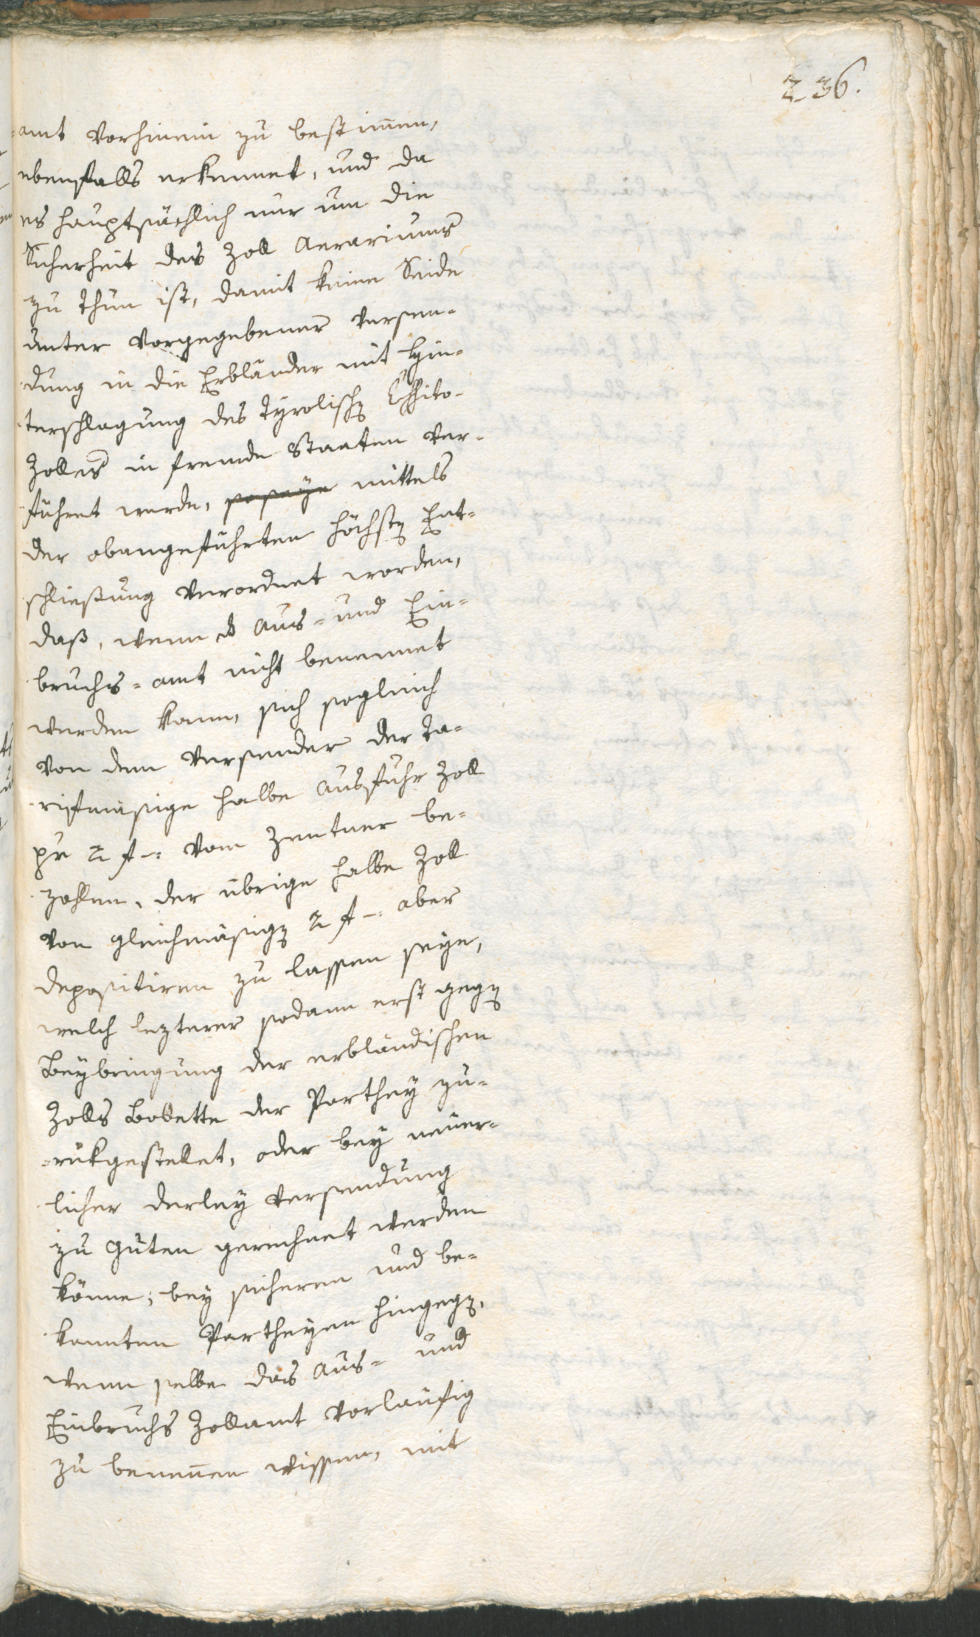 236.
amt vorhinein zu bestim̄en,
ebenfalls erkennet, und da
es hauptsächlich nur um die
Sicherheit des Zoll Aerariums
zu thun ist, damit keine Seide
unter vorgegebener Versen-
dung in die Erbländer mit Hin-
terschlagung des Tyrolisch Essito-
Zolles in fremde Staaten ver-
führet werde, soseye mittels
der obangeführten höchst Ent-
schließung verordnet worden,
daß, wenn das Aus- und Ein-
bruchs-amt nicht benennet
werden kann, sich sogleich
von dem Versender der Ta-
rifmäsige halbe Ausfuhr Zoll
pr 2 f –: vom Zentner be-
zahlen, der übrige halbe Zoll
von gleichmäsig 2 f –: aber
depositiren zu lassen seye,
welch lezterer sodann erst geg
Beybringung der erbländischen
Zolls Bollette der Parthey zu-
rükgestellet, oder bey neuer-
licher derley Versendung
zu guten gerechnet werden
könne; bey sicheren und be-
kannten Partheyen hingeg,
wenn selbe das Aus- und
Einbruchs Zollamt vorläufig
zu beneñen wissen, mit